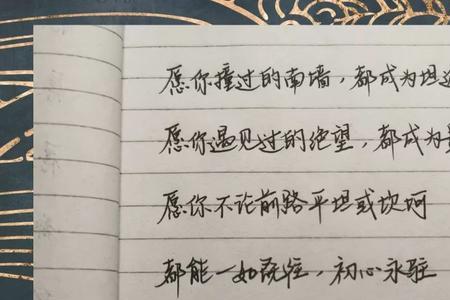 愿你撞过的南墙，都成为坦
愿你遇见过的绝望，都成为
愿你不论前路平坦或坎坷
都能一如既往，初心永驻